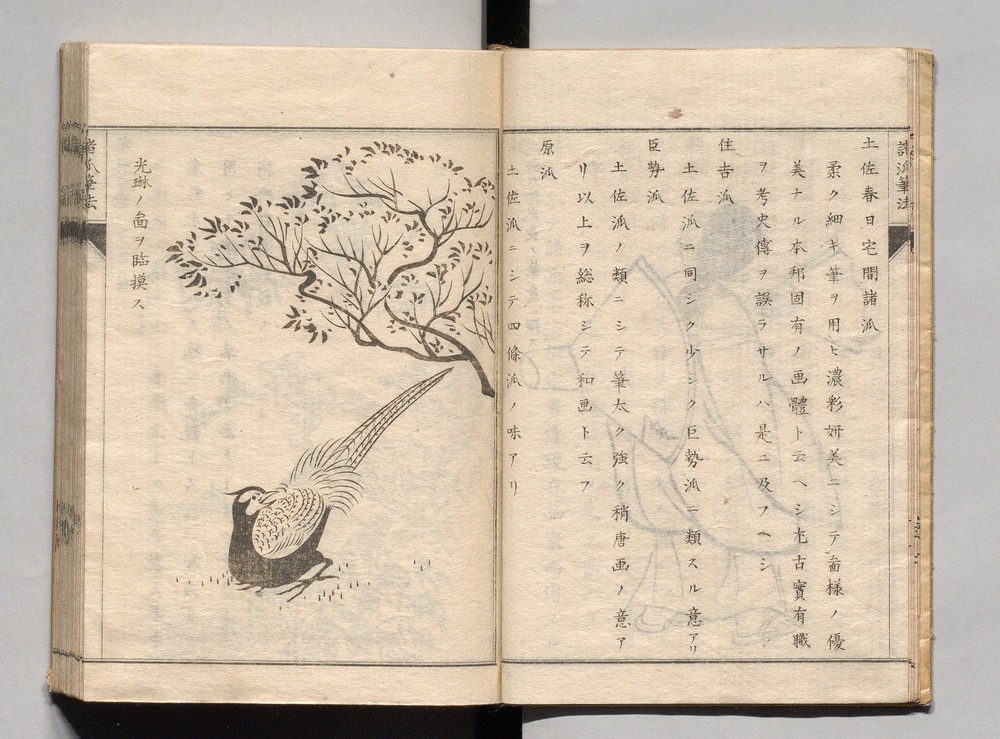 諸派筆法
土佐春日宅間諸派
柔ク細キ筆ヲ用ヒ濃彩妍美ニシテ畫様ノ優
美ナル本邦固有ノ画體ト云ヘシ尤古實有職
ヲ考史傳ヲ誤ラサルハ是ニ及フヘシ
住吉派
土佐派ニ同シク少シク巨勢派ニ類スル意アリ
臣勢派
土佐派ノ類ニシテ筆太ク強ク稍唐画ノ意ア
リ以上ヲ総称シテ和画ト云フ
原派
土佐派ニシテ四條派ノ味アリ
光琳ノ畫ヲ臨摸ス
諸派筆法